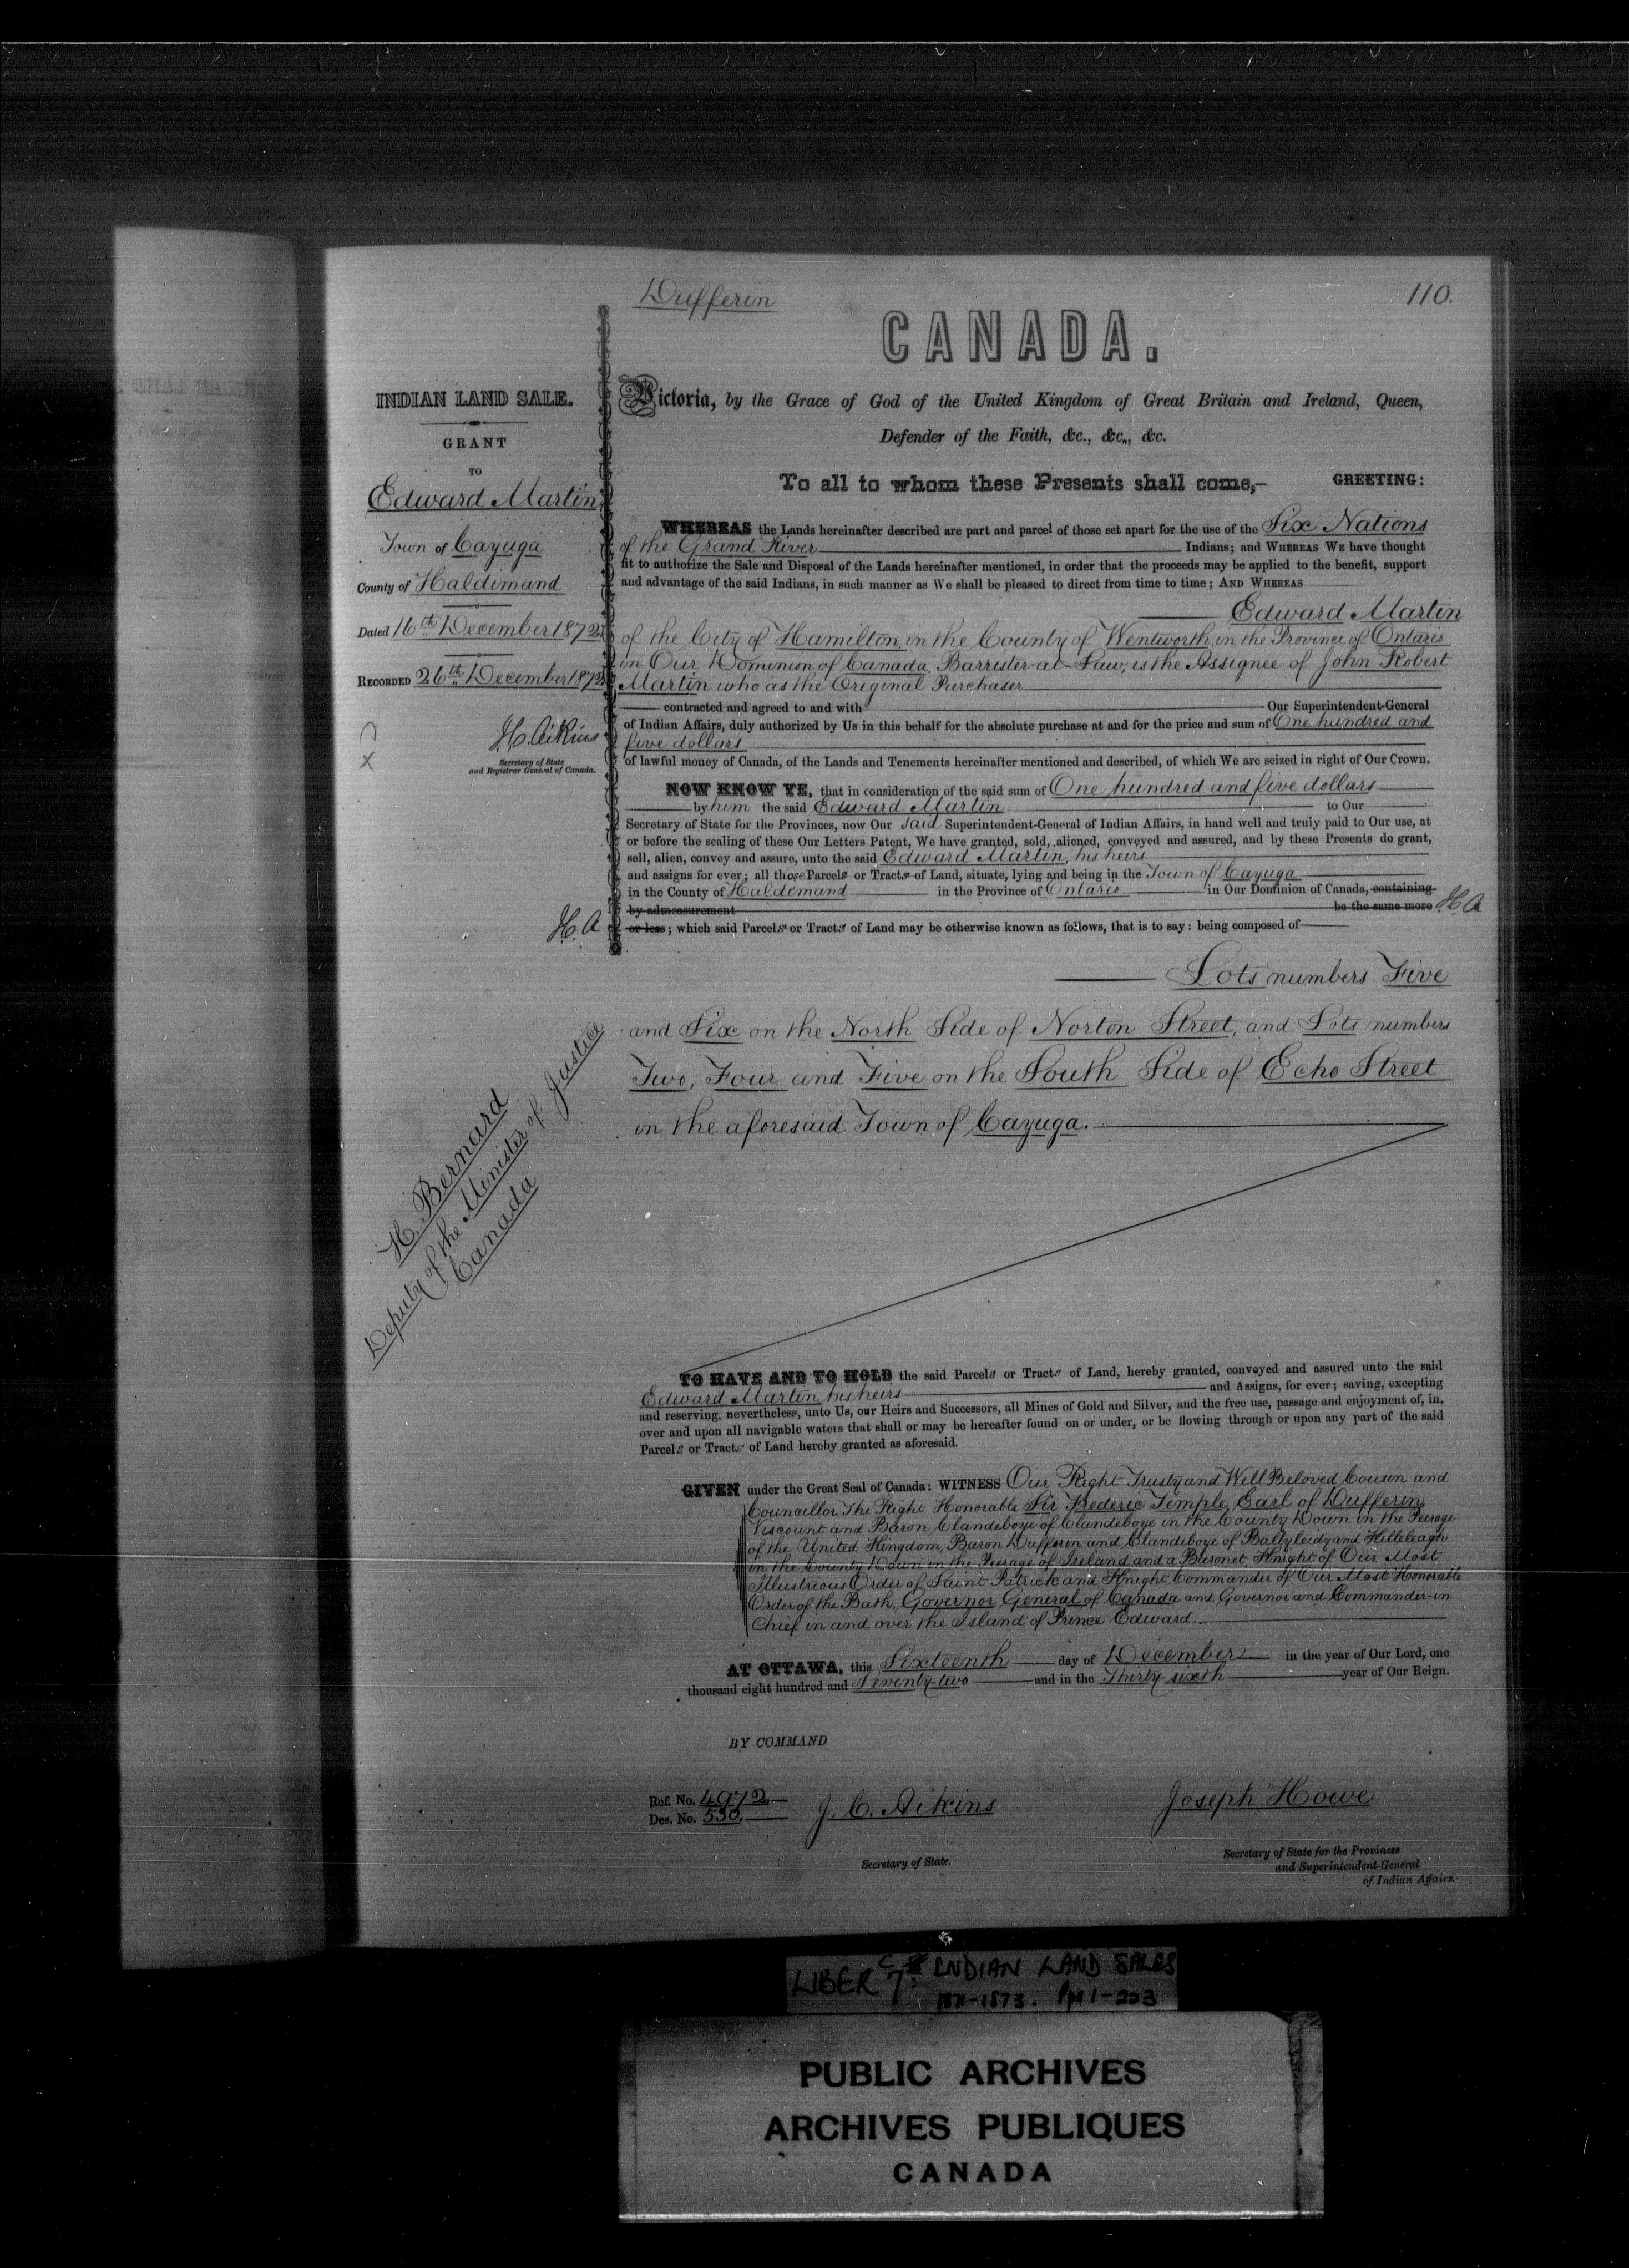 Dufferin
110.
CANADA.
INDIAN LAND SALE.
GRANT
TO
Edward Martin
Town of Cayuga
County of Haldimand
Dated 16th December 1872
RECORDED 26th December 1872
H. Aikins
Secretary of State
and Registrar General of Canada.
Victoria, by the Grace of God of the United Kingdom of Great Britain and Ireland, Queen,
Defender of the Faith, &c., &c., &c.
To all to whom these Presents shall come,— GREETING:
WHEREAS the Lands hereinafter described are part and parcel of those set apart for the use of the Six Nations
of the Grand River Indians; and WHEREAS WE have thought
fit to authorize the Sale and Disposal of the Lands hereinafter mentioned, in order that the proceeds may be applied to the benefit, support
and advantage of the said Indians, in such manner as We shall be pleased to direct from time to time; AND WHEREAS
Edward Martin
of the City of Hamilton, in the County of Wentworth, in the Province of Ontario
in Our Dominion of Canada, Barrister-at-Law, is the Assignee of John Robert
Martin who as the Original Purchaser
contracted and agreed to and with Our Superintendent-General
of Indian Affairs, duly authorized by Us in this behalf for the absolute purchase at and for the price and sum of One hundred and
five dollars
of lawful money of Canada, of the Lands and Tenements hereinafter mentioned and described, of which We are seized in right of Our Crown.
NOW KNOW YE, that in consideration of the said sum of One hundred and five dollars
by him the said Edward Martin to Our
Secretary of State for the Provinces, now Our said Superintendent-General of Indian Affairs, in hand well and truly paid to Our use, at
or before the sealing of these Our Letters Patent, We have granted, sold, aliened, conveyed and assured, and by these Presents do grant,
sell, alien, convey and assure, unto the said Edward Martin, his heirs
and assigns for ever; all those Parcels or Tracts of Land, situate, lying and being in the Town of Cayuga
in the County of Haldimand in the Province of Ontario in Our Dominion of Canada, containing
by admeasurement be the same more H.A
H.A or less; which said Parcels or Tracts of Land may be otherwise known as follows, that is to say: being composed of
Lots numbers Five
and Six on the North Side of Norton Street, and Lots numbers
Two, Four and Five on the South Side of Echo Street
in the aforesaid Town of Cayuga.
H. Bernard
Deputy of the Minister of Justice
Canada
TO HAVE AND TO HOLD the said Parcels or Tracts of Land, hereby granted, conveyed and assured unto the said
Edward Martin, his heirs and Assigns, for ever; saving, excepting
and reserving, nevertheless, unto Us, our Heirs and Successors, all Mines of Gold and Silver, and the free use, passage and enjoyment of, in,
over and upon all navigable waters that shall or may be hereafter found on or under, or be flowing through or upon any part of the said
Parcels or Tracts of Land hereby granted as aforesaid.
GIVEN under the Great Seal of Canada: WITNESS Our Right Trusty and Well Beloved Cousin and
Councillor The Right Honorable Sir Frederic Temple, Earl of Dufferin,
Viscount and Baron Clandeboye of Clandeboye in the County Down in the Peerage
of the United Kingdom, Baron Dufferin and Clandeboye of Ballyleidy and Killeleagh
in the County Down in the Peerage of Ireland and a Baronet, Knight of Our Most
Illustrious Order of Saint Patrick and Knight Commander of Our Most Honorable
Order of the Bath, Governor General of Canada and Governor and Commander-in
Chief in and over the Island of Prince Edward.
AT OTTAWA, this Sixteenth day of December in the year of Our Lord, one
thousand eight hundred and Seventy-two and in the Thirty-sixth year of Our Reign.
BY COMMAND
Ref. No. 4972
Des. No. 530.
J. C. Aikins
Secretary of State.
Joseph Howe
Secretary of State for the Provinces
and Superintendent-General
of Indian Affairs.
LIBER C7: INDIAN LAND SALES
1871-1873. Pps 1-223
PUBLIC ARCHIVES
ARCHIVES PUBLIQUES
CANADA